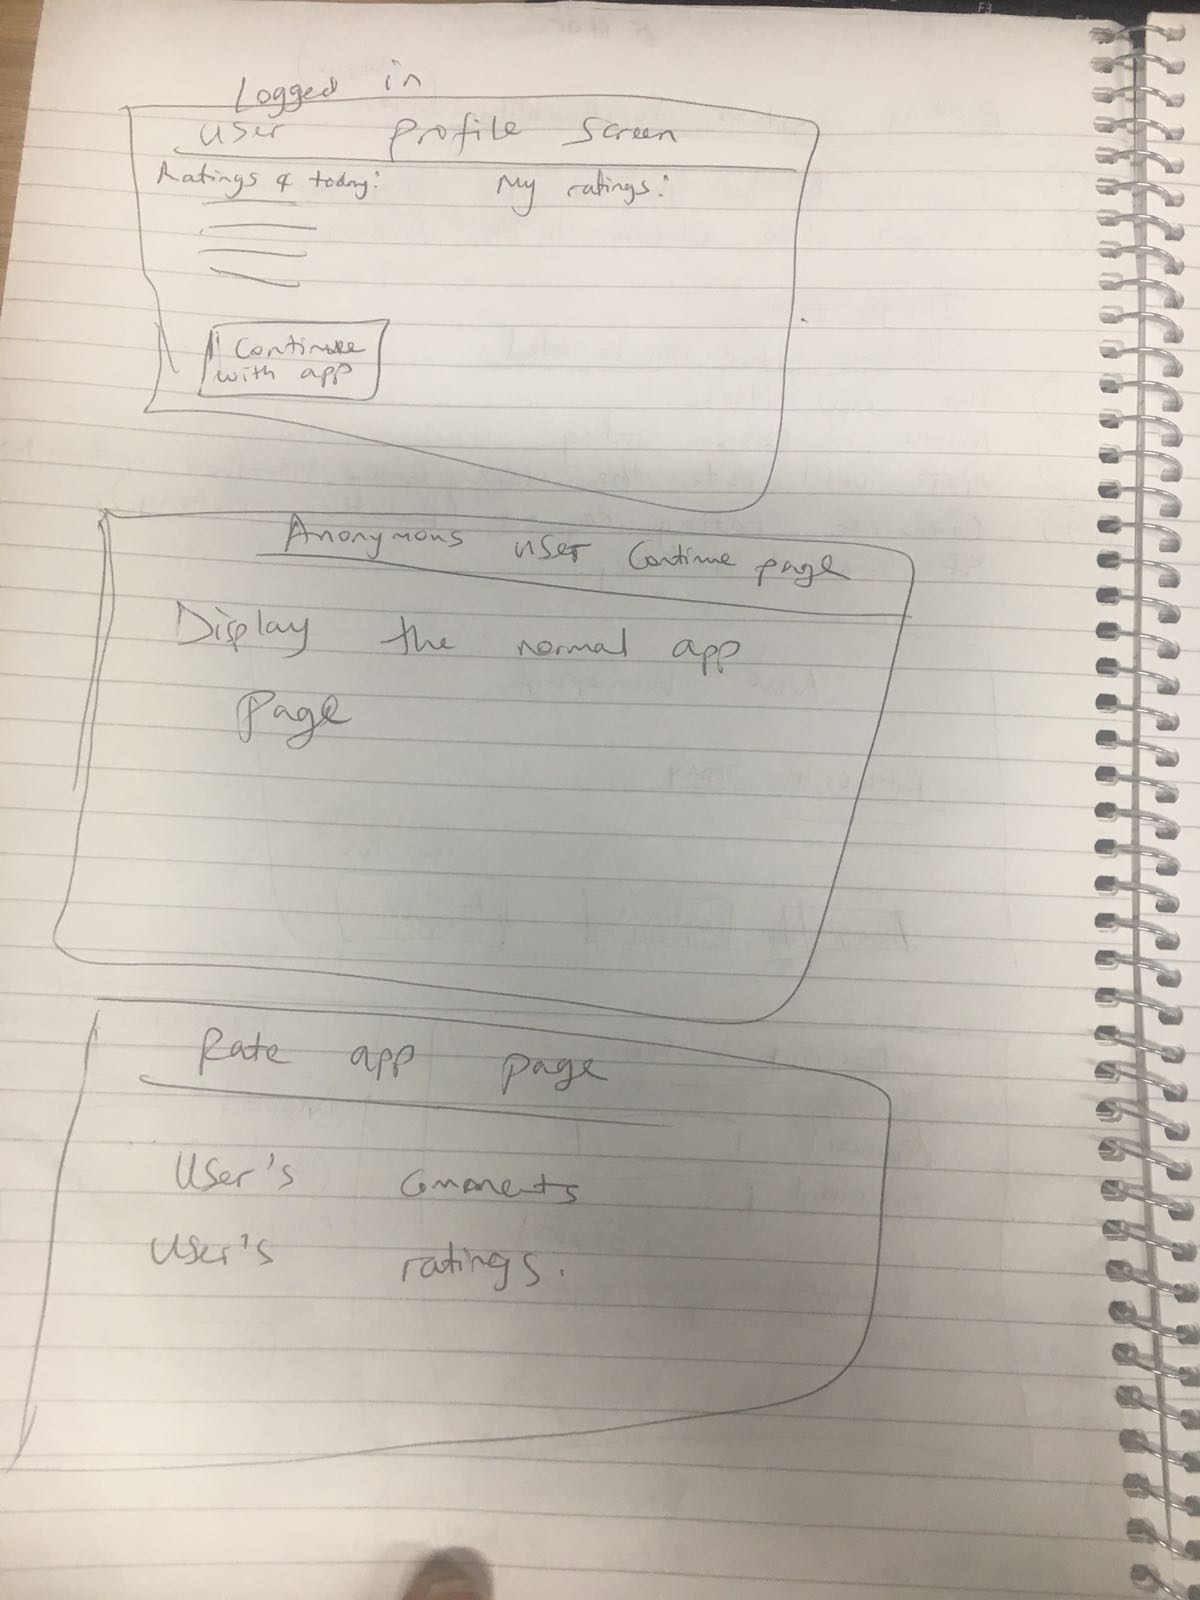 Logged in
User Profile Screen
Ratings 4 today:
My ratings:
Continue
with app
Anonymous user Continue page
Display the normal app
Page
Rate app page
User's comments
User's ratings.